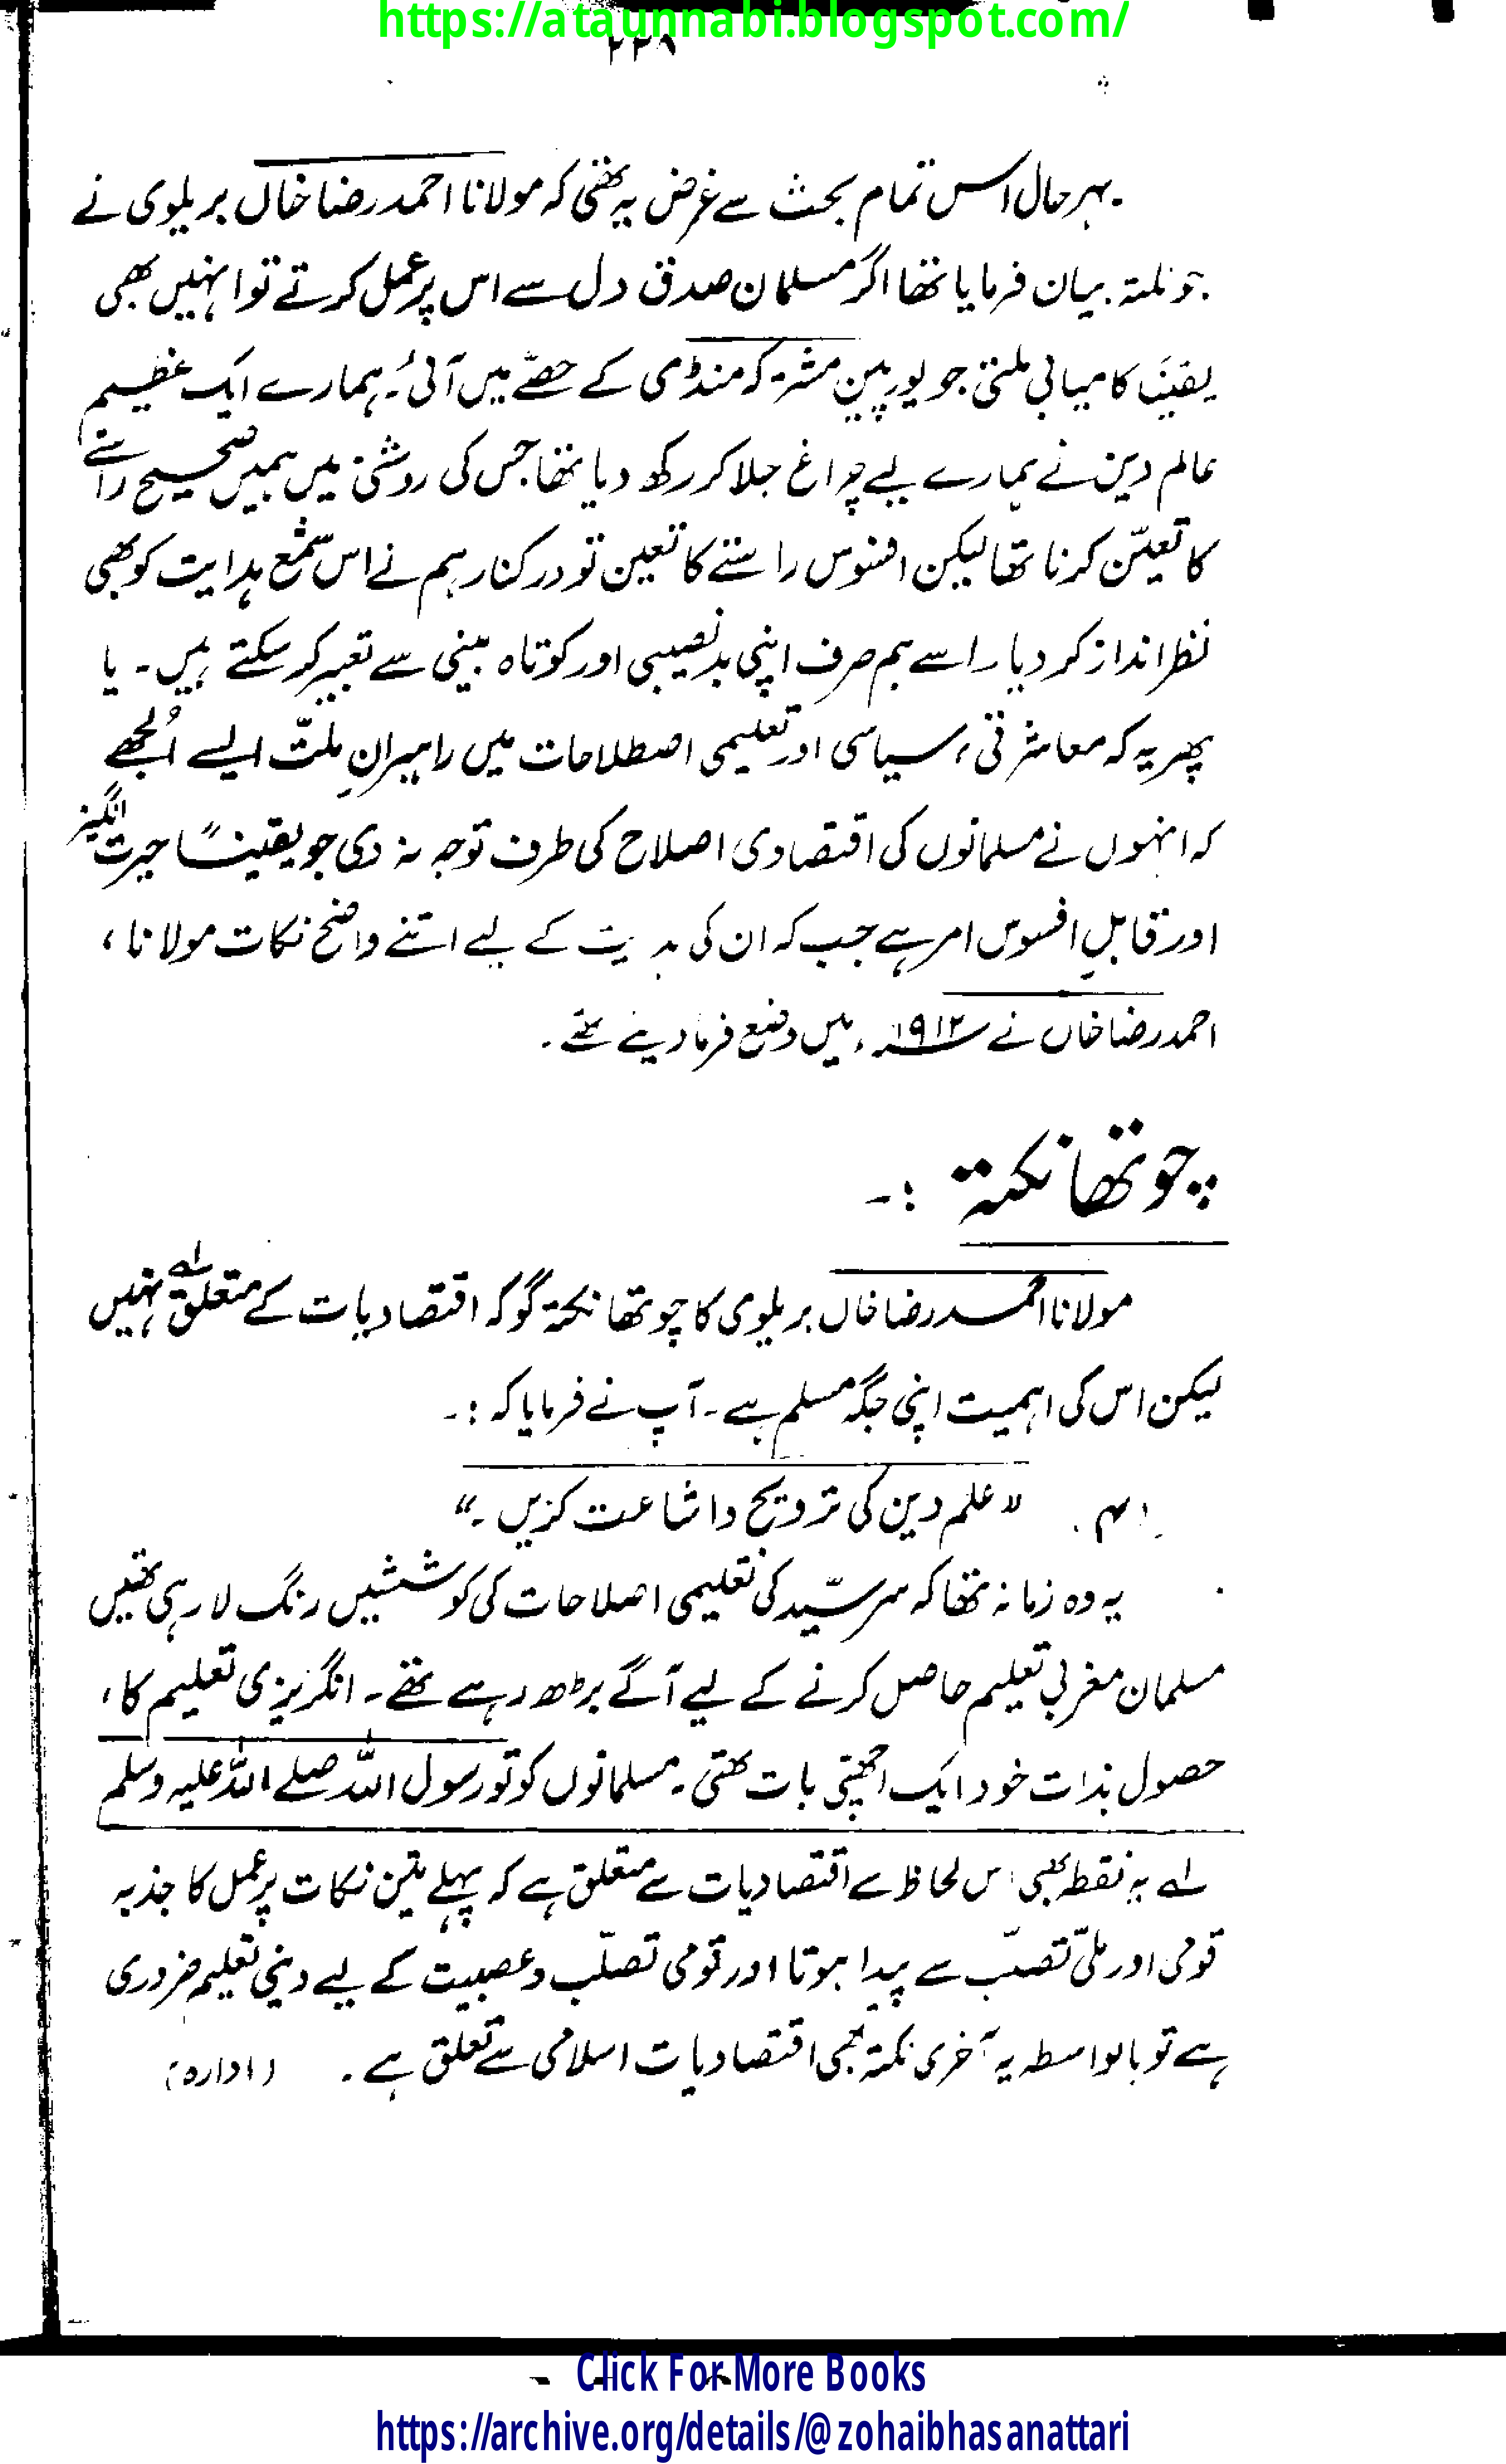 https://ataunnabi.blogspot.com/
۲۲۸
بہر حال اس تمام بحث سے غرض یہ تھی کہ مولانا احمد رضا خاں بریلوی نے
جو نکتہ بیان فرمایا تھا اگر مسلمان صدق دل سے اس پر عمل کرتے تو انہیں بھی
یقیناً کامیابی ملتی جو یورپین مشترکہ منڈی کے حصّے میں آئی۔ ہمارے ایک عظیم
عالم دین نے ہمارے لیے چراغ جلا کر رکھ دیا تھا جس کی روشنی میں ہمیں صحیح راستے
کا تعیّن کرنا تھا لیکن افسوس راستے کا تعین تو درکنار ہم نے اس شمع ہدایت کو بھی
نظر انداز کر دیا۔ اسے ہم صرف اپنی بدنصیبی اور کوتاہ بینی سے تعبیر کر سکتے ہیں۔ یا
پھر یہ کہ معاشرتی، سیاسی اور تعلیمی اصطلاحات میں راہبرانِ ملّت ایسے اُلجھے
کہ انہوں نے مسلمانوں کی اقتصادی اصلاح کی طرف توجہ نہ دی جو یقیناً حیرت انگیز
اور قابلِ افسوس امر ہے جب کہ ان کی ہدایت کے لیے اتنے واضح نکات مولانا،
احمد رضا خاں نے ۱۹۱۲ء میں وضع فرما دیئے تھے۔
چوتھا نکتہ :-
مولانا احمد رضا خاں بریلوی کا چوتھا نکتہ گو کہ اقتصادیات کے متعلق نہیں لے
لیکن اس کی اہمیت اپنی جگہ مسلم ہے۔ آپ نے فرمایا کہ :-
(۴) "علم دین کی ترویج و اشاعت کریں۔"
یہ وہ زمانہ تھا کہ سرسیّد کی تعلیمی اصلاحات کی کوششیں رنگ لا رہی تھیں
مسلمان مغربی تعلیم حاصل کرنے کے لیے آگے بڑھ رہے تھے۔ انگریزی تعلیم کا،
حصول بذات خود ایک اچھی بات تھی۔ مسلمانوں کو تو رسول اللہ صلے اللہ علیہ وسلم
لے یہ نقطہ بھی اس لحاظ سے اقتصادیات سے متعلق ہے کہ پہلے تین نکات پر عمل کا جذبہ
قومی اور ملّی تصلّب سے پیدا ہوتا اور قومی تصلّب و عصبیت کے لیے دینی تعلیم ضروری
ہے تو بالواسطہ یہ آخری نکتہ بھی اقتصادیات اسلامی سے تعلق ہے۔ (ادارہ)
Click For More Books
https://archive.org/details/@zohaibhasanattari